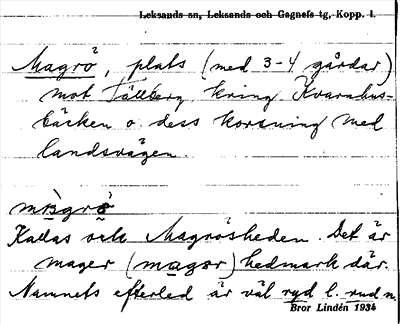 Leksands sn, Leksands och Gagnefs tg, Kopp. l.
Magrö, plats (med 3-4 gårdar)
mot Tällberg, kring Kvarnhus-
bäcken o. dess korsning med
landsvägen.
Kallas och Magrösheden. Det är
mager (magər) hedmark där.
Namnets efterled är väl ryd l. rud n.
Bror Lindén 1934